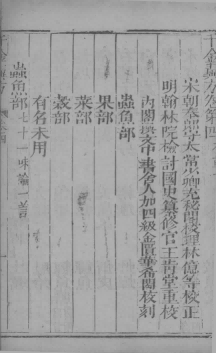 宋朝奉郎守太常少卿充秘閣校理林億等校正
明翰林院檢討國史纂修官王肯堂重校
内閣撰文中書舍人加四級金匱華希閎校刻
蟲魚部
果部
菜部
穀部
有名未用
蟲魚部七十一味